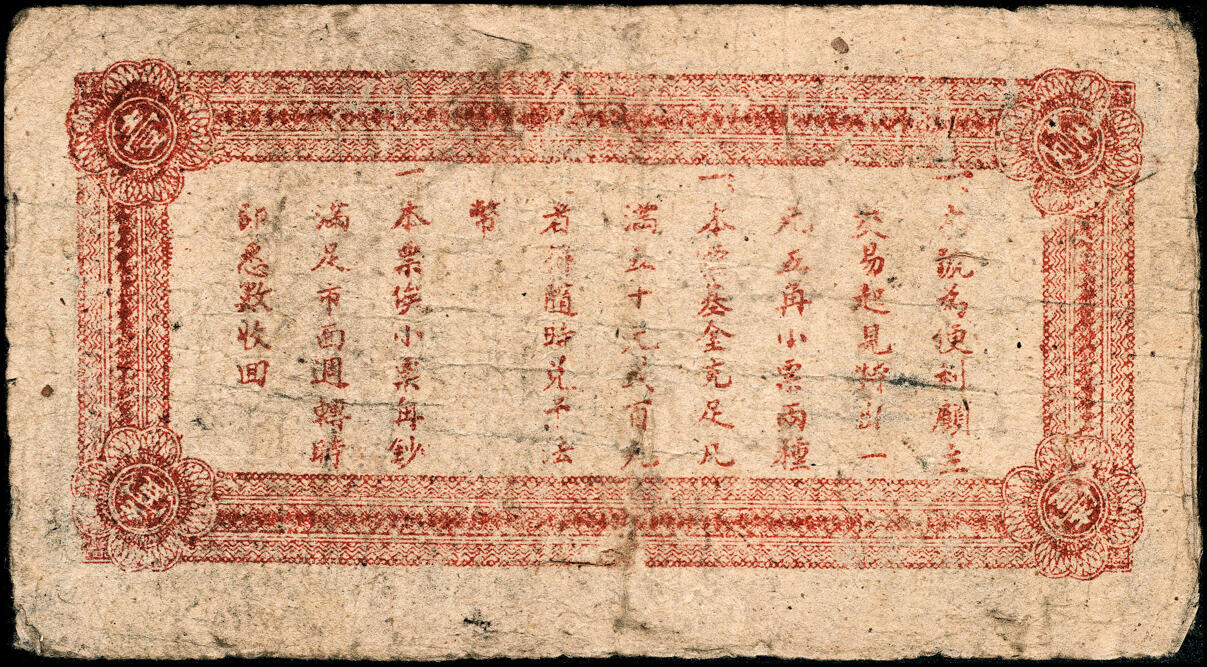 一、本號為便利顧主
交易起見將出一
元五角小票兩種
一、本票基金充足凡
滿五十元或百元
者得隨時兌予法
幣
一、本票俟小票每鈔
滿足市面週轉時
即悉數收回
壹
壹